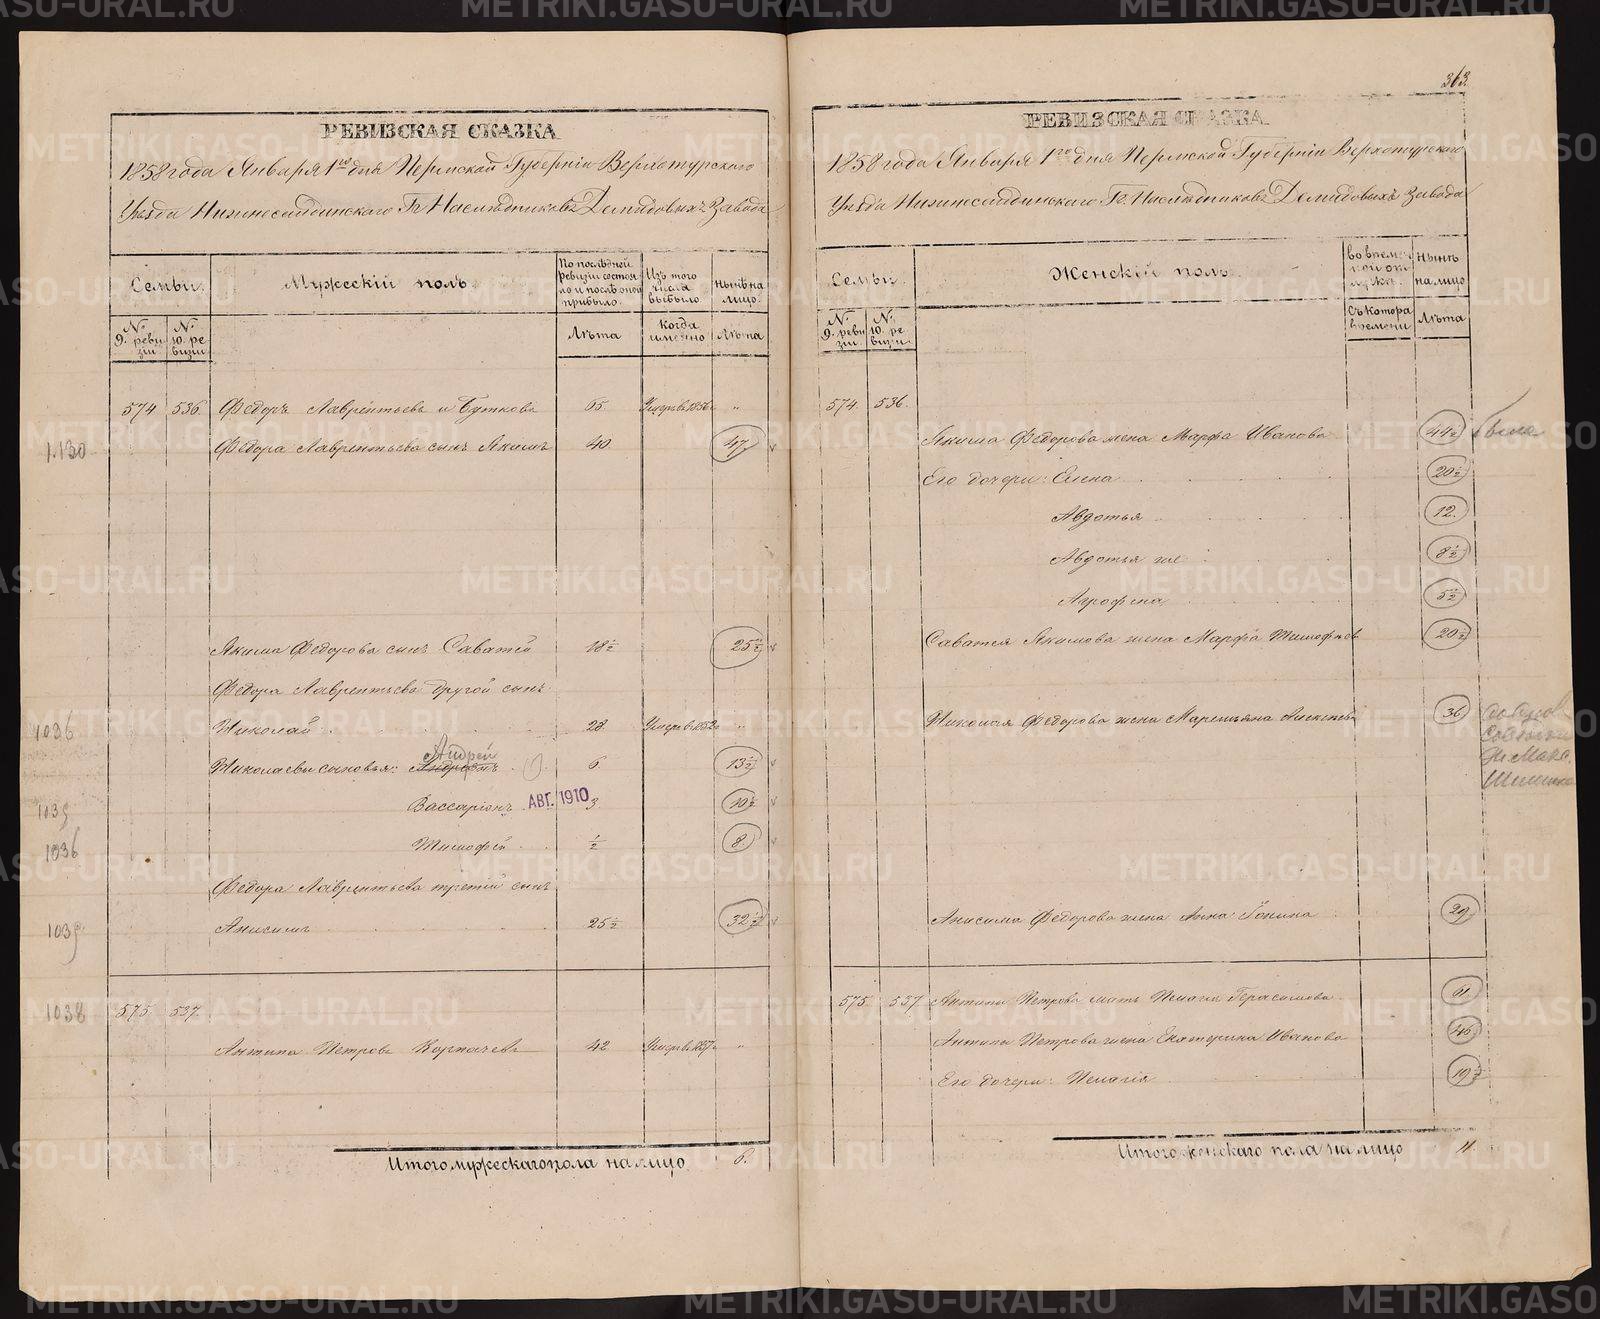 363
РЕВИЗСКАЯ СКАЗКА
1858 года Января 1го дня Пермской Губерніи Верхотурскаго
Уѣзда Нижнесалдинскаго Гг. Наслѣдниковъ Демидовыхъ Завода
Семьи.
Мужескій полъ.
По послѣдней ревизіи состояло и послѣ оной прибыло.
Изъ того числа выбыло
Нынѣ на лицо.
№ 9. ревизіи
№ 10. ревизіи
Лѣта
Когда именно
Лѣта
574 536. Федоръ Лаврентьевъ 65. Умеръ въ 1856 г „
1.130 Федора Лаврентьева сынъ Якимъ 40. 47
Якима Федорова сынъ Саватей 18½ 25½
Федора Лаврентьева другой сынъ
1036 Николай 28. Умеръ въ 1852 г „
Андрей
Николаевы сыновья: 6 13½
1035 Вассаріонъ АВГ. 1910 3 10½
1036 Тимофей ½ 8.
Федора Лаврентьева третій сынъ
1035 Анисимъ 25½ 32½
1038 575 537.
Антипа Петровъ 42 Умеръ въ 1857 г „
Итого мужескаго пола на лицо 6.
РЕВИЗСКАЯ СКАЗКА
1858 года Января 1го дня Пермской Губерніи Верхотурскаго
Уѣзда Нижнесалдинскаго Гг. Наслѣдниковъ Демидовыхъ Завода
Семьи.
Женскій полъ.
Во временной отлучкѣ.
Нынѣ на лицо
№ 9. ревизіи
№ 10. ревизіи
Съ котора времени
Лѣта
574. 536.
Якима Федорова жена Марфа Иванова 44½
Его дочери: Елена 20½
Авдотья 12.
Авдотья же 8½
Агрофена 5½
Саватея Якимова жена Марфа Тимофеева 20½
Николая Федорова жена Маремьяна 36
Анисима Федорова жена Анна 29
575 537. Антипы Петрова мать Пелагія Герасимова 61
Антипы Петрова жена Екатерина Иванова 46
Его дочери: Пелагія 19½
Итого женскаго пола на лицо 11.
METRIKI.GASO-URAL.RU